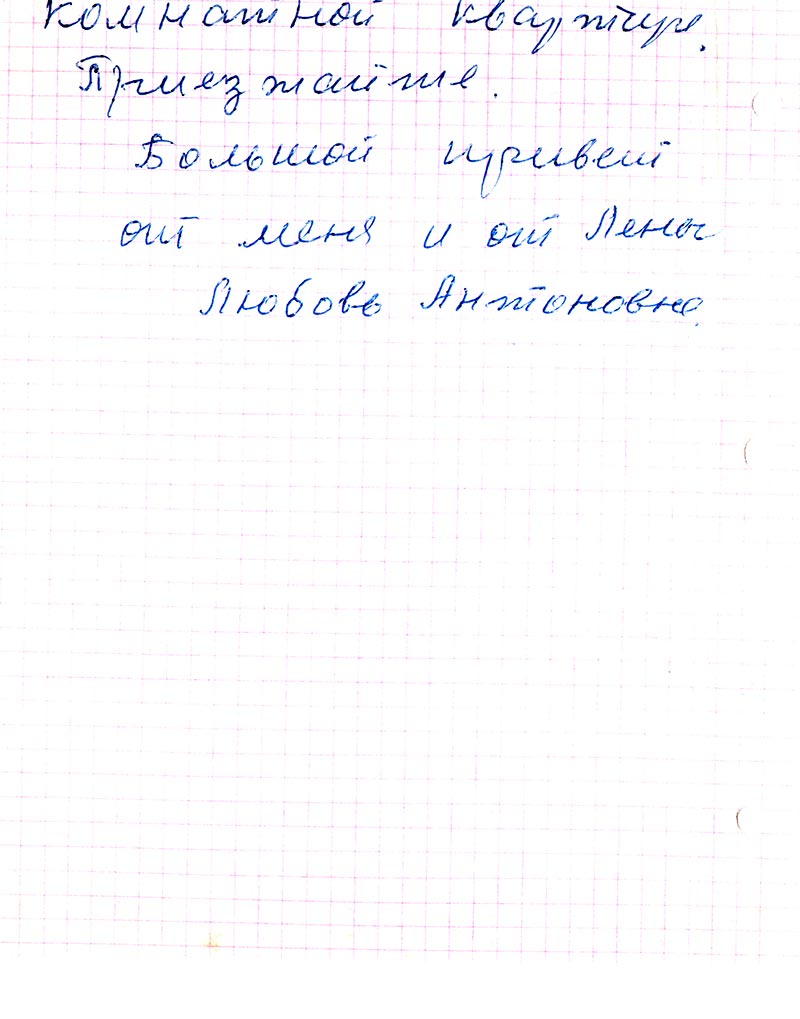 комнатной квартире.
Приезжайте.
Большой привет
от меня и от Лены
Любовь Антоновна.